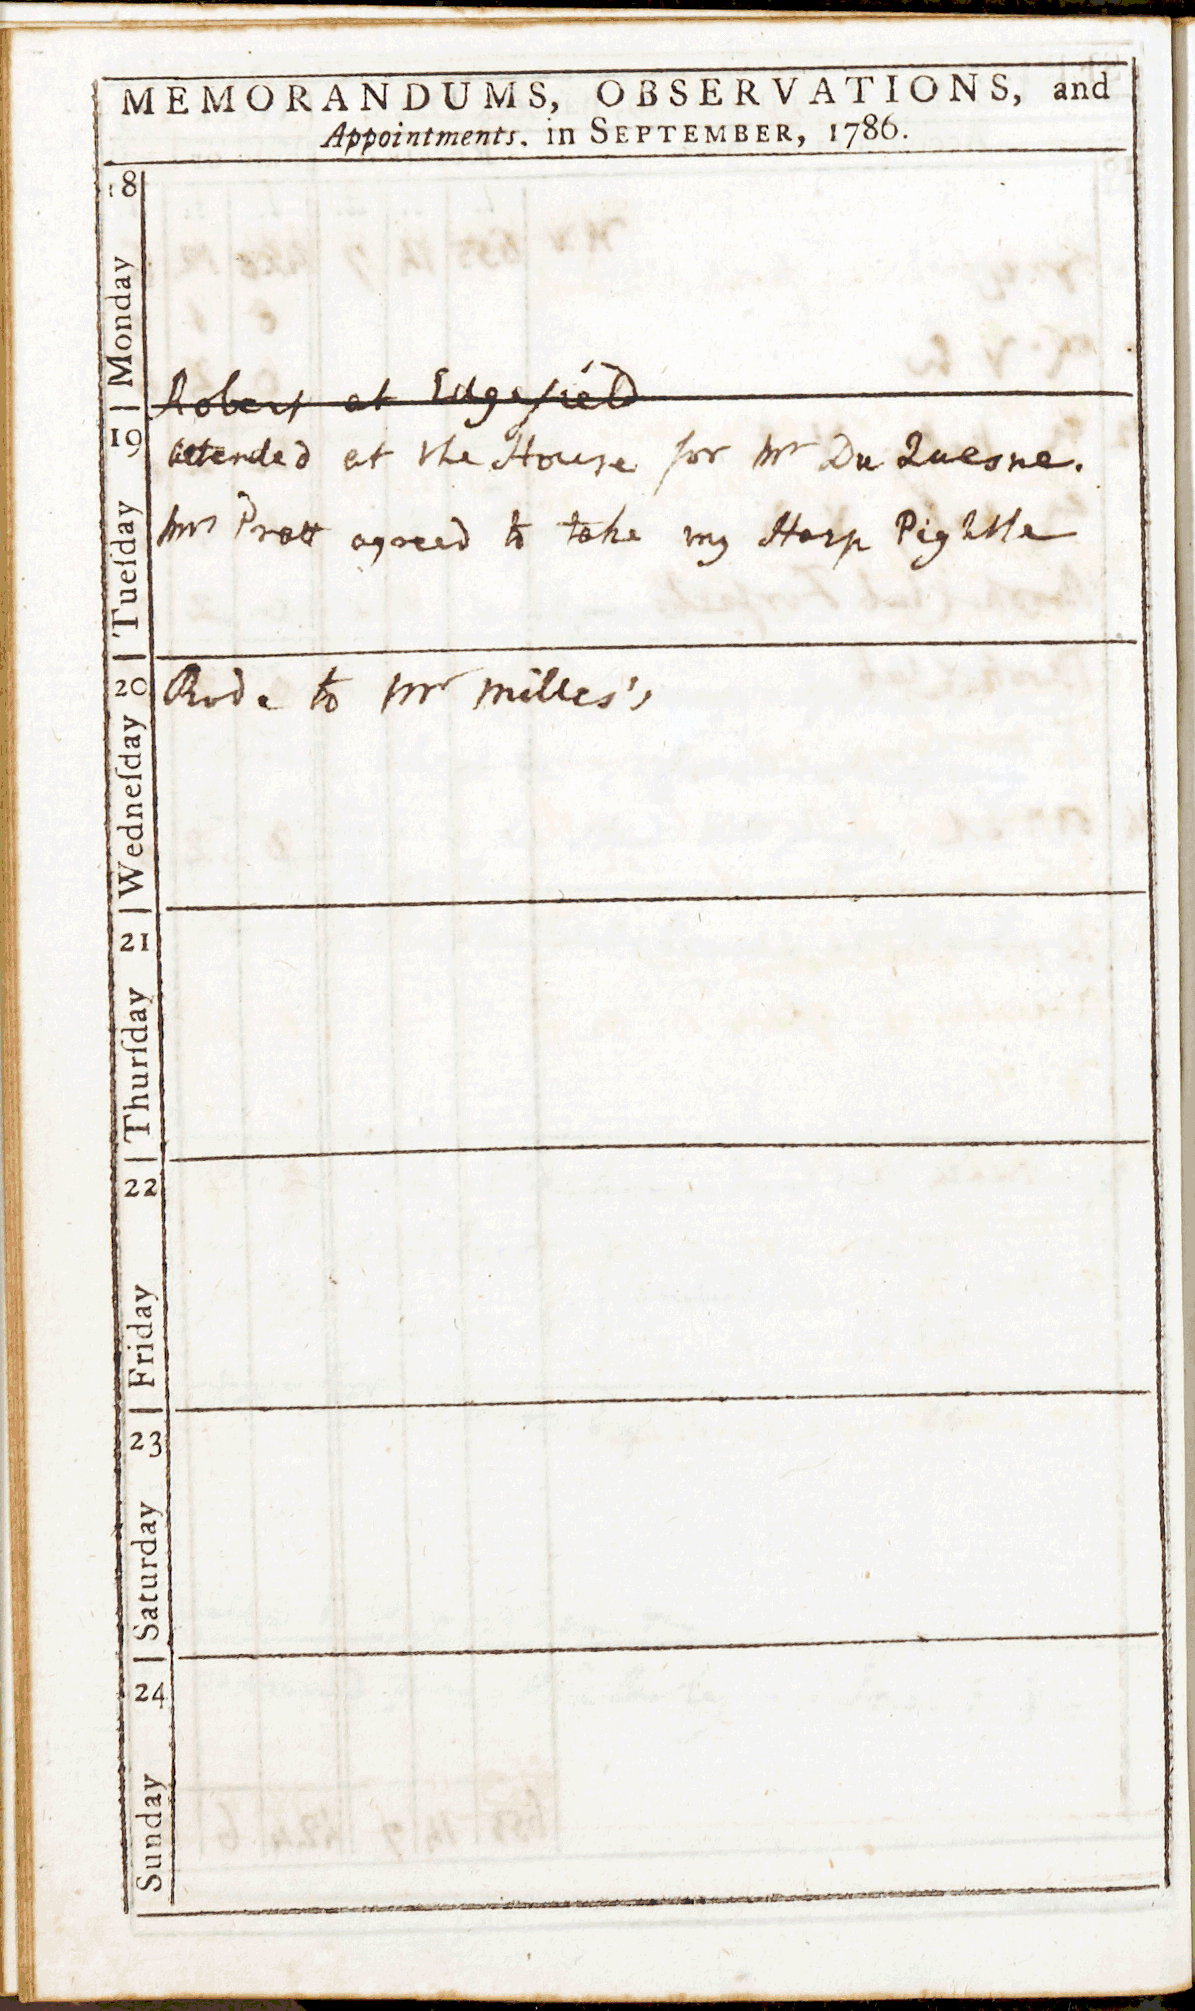 MEMORANDUMS, OBSERVATIONS, and
Appointments, in SEPTEMBER, 1786.
18
Monday
Robert at Edgefield
19
Tueſday
attended at the House for Mr Du Quesne.
Mrs Pratt agreed to take my Hosp Pightle
20
Wedneſday
Rode to Mr Milles's
21
Thurſday
22
Friday
23
Saturday
24
Sunday